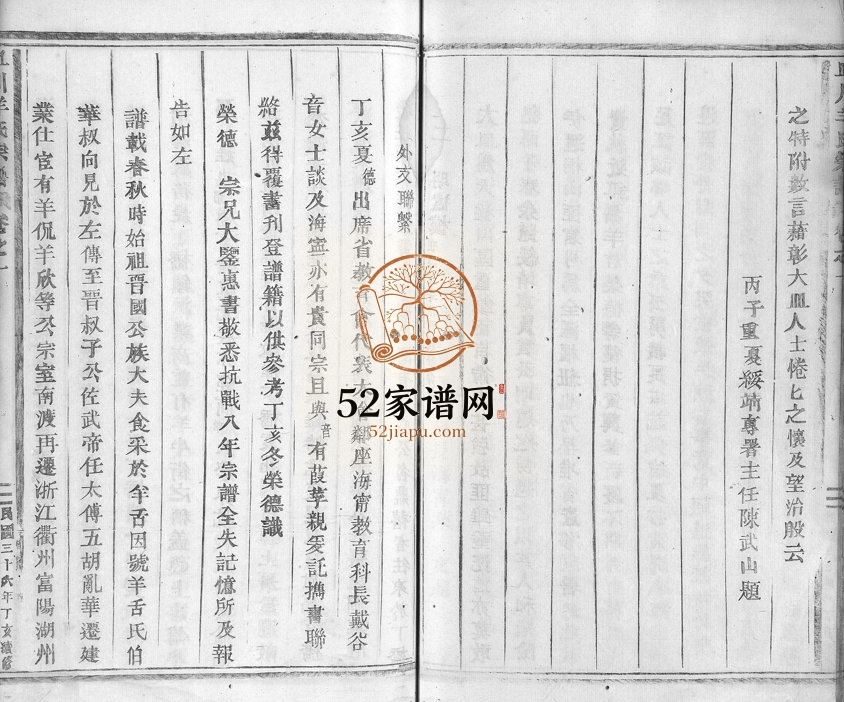 之特附數言藉彰大血人士倦匕之懷及望治殷云
丙子重夏綏靖專署主任陳武山題
外支聯繫
丁亥夏德出席省教育會代表大會鄰座海甯教育科長戴谷
音女士談及海寧亦有貴同宗且與音有葭莩親爰託攜書聯
絡茲得覆書刊登譜籍以供參考丁亥冬榮德識
榮德 宗兄大鑒惠書敬悉抗戰八年宗譜全失記憶所及報
告如左
譜載春秋時始祖晉國公族大夫食采於羊舌因號羊舌氏伯
華叔向見於左傳至晉叔子公佐武帝任太傅五胡亂華遷建
業仕宦有羊侃羊欣等公宗室南渡再遷浙江衢州富陽湖州
民國三十六年丁亥續修
52家谱网
52jiapu.com